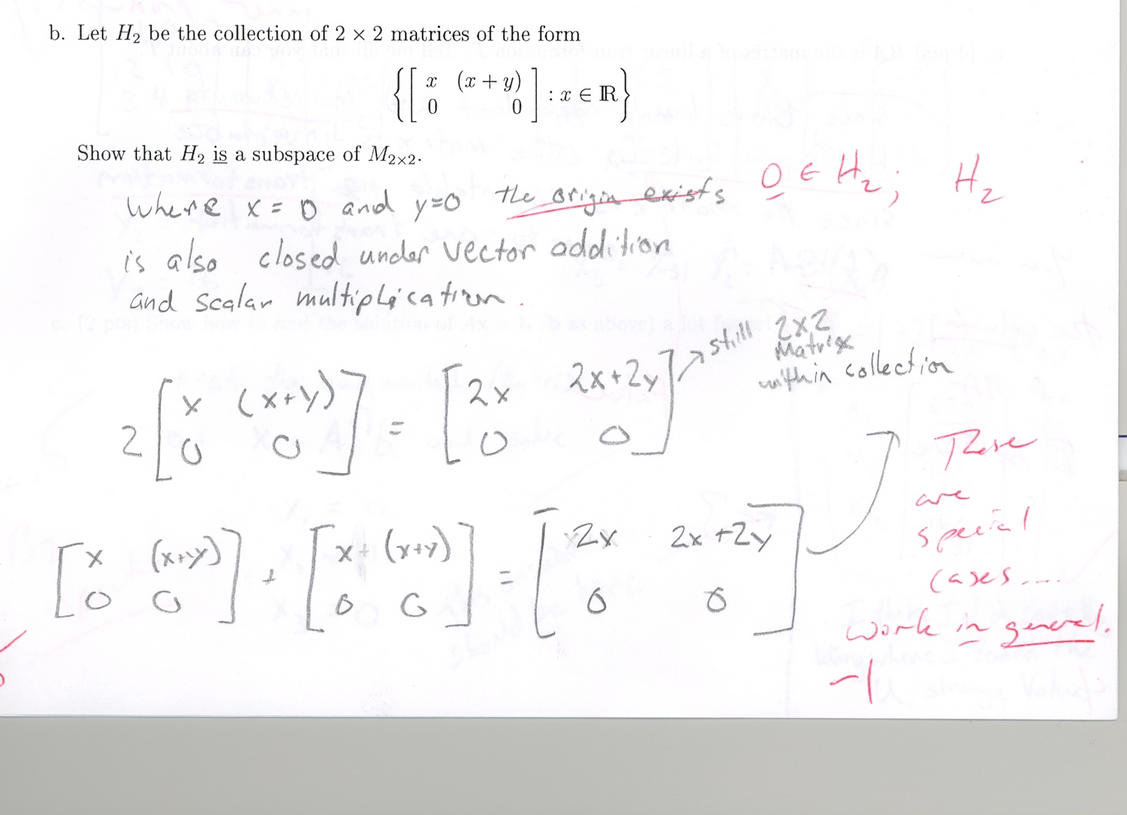 b. Let H₂ be the collection of 2 × 2 matrices of the form
{[ x (x + y) ; 0 0 ] : x ∈ ℝ}
Show that H₂ is a subspace of M₂ₓ₂.
Where x = 0 and y=0 the origin exists 0 ∈ H₂; H₂
is also closed under vector addition
and scalar multiplication.
2 [ x (x+y) ; 0 0 ] = [ 2x 2x+2y ; 0 0 ] → still 2x2
Matrix
within collection
[ x (x+y) ; 0 0 ] + [ x+ (x+y) ; 0 0 ] = [ 2x 2x+2y ; 0 0 ]
These
are
special
cases....
work in general.
-1